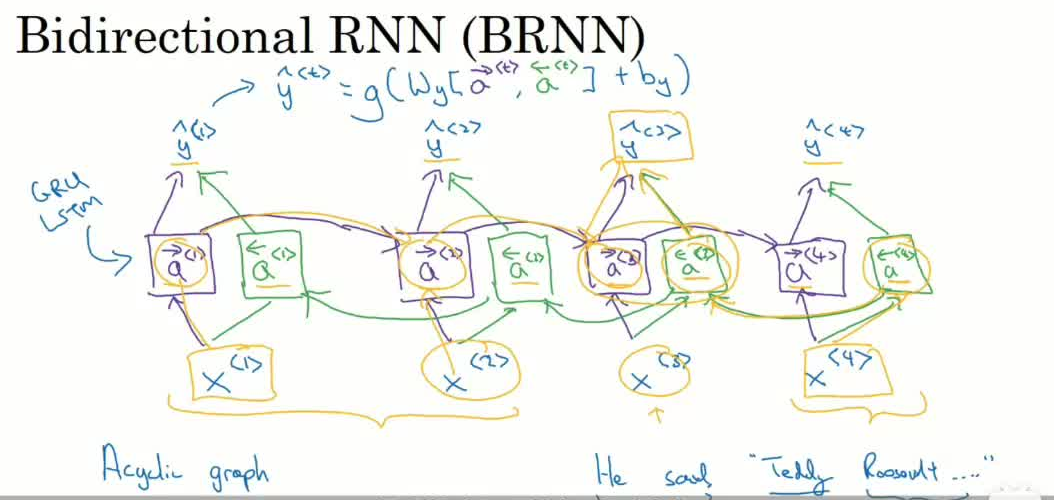 Bidirectional RNN (BRNN)
ŷ<t> = g(Wy[→a<t>, ←a<t>] + by)
ŷ<1> ŷ<2> ŷ<3> ŷ<4>
GRU
LSTM
→a<1> ←a<1> →a<2> ←a<2> →a<3> ←a<3> →a<4> ←a<4>
x<1> x<2> x<3> x<4>
Acyclic graph
He said "Teddy Roosevelt ...."